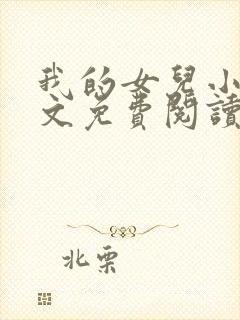 我的女兒小
文免費閱讀
北栗